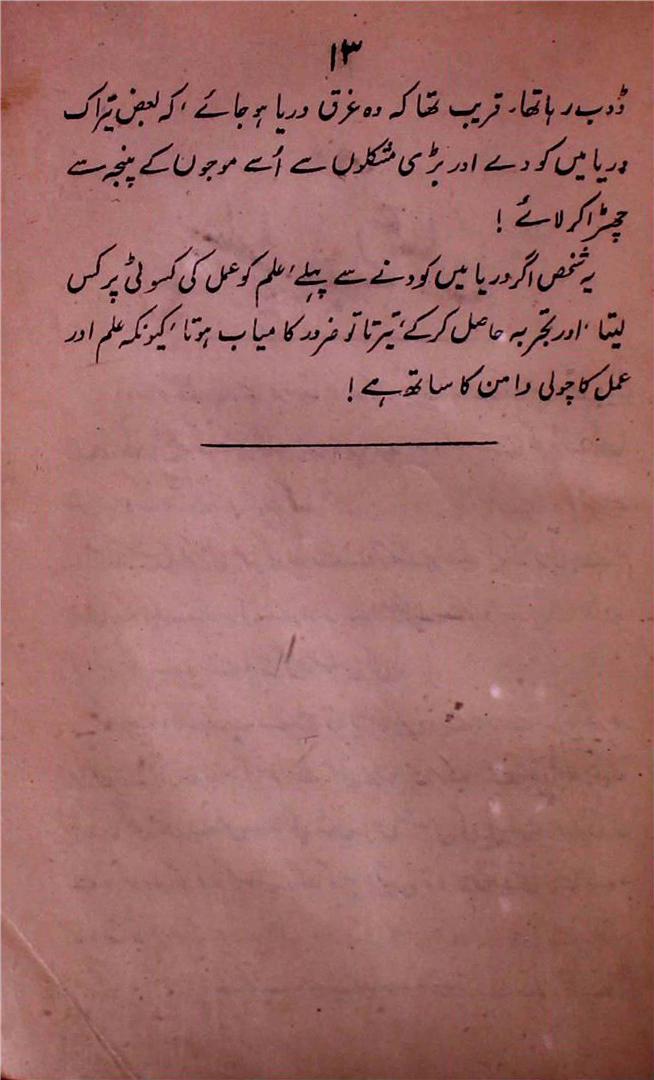 ۱۳
ڈوب رہا تھا۔ قریب تھا کہ وہ غرق دریا ہو جائے، کہ بعض تیراک
دریا میں کودے اور بڑی مشکلوں سے اُسے موجوں کے پنجہ سے
چھڑا کر لائے !
یہ شخص اگر دریا میں کودنے سے پہلے، علم کو عمل کی کسوٹی پر کس
لیتا، اور تجربہ حاصل کر کے، تیرتا تو ضرور کامیاب ہوتا، کیونکہ علم اور
عمل کا چولی دامن کا ساتھ ہے !